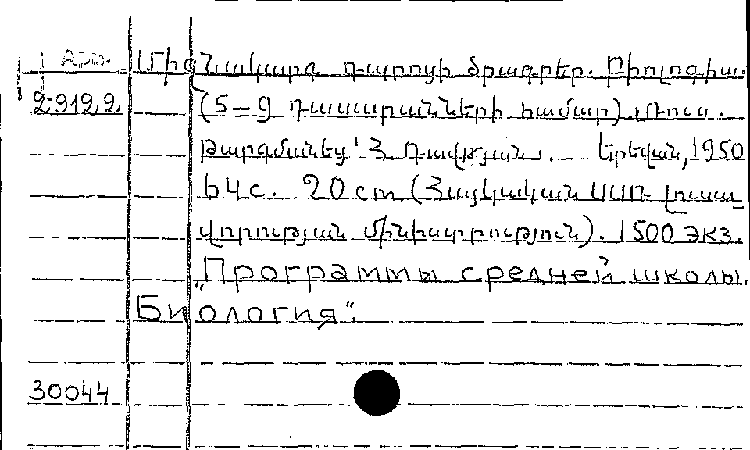 Арм. Միջնակարգ դպրոցի ծրագրեր. Բիոլոգիա
2-9122 (5-9 դասարանների համար) Ռուս.
թարգմանեց՝ Հ. Դավթյան. Երեվան, 1950
64 с. 20 cm (Հայկական ՍՍՌ լուսա-
վորության մինիստրություն). 1500 экз.
„Программы средней школы.
Биология“.
30044